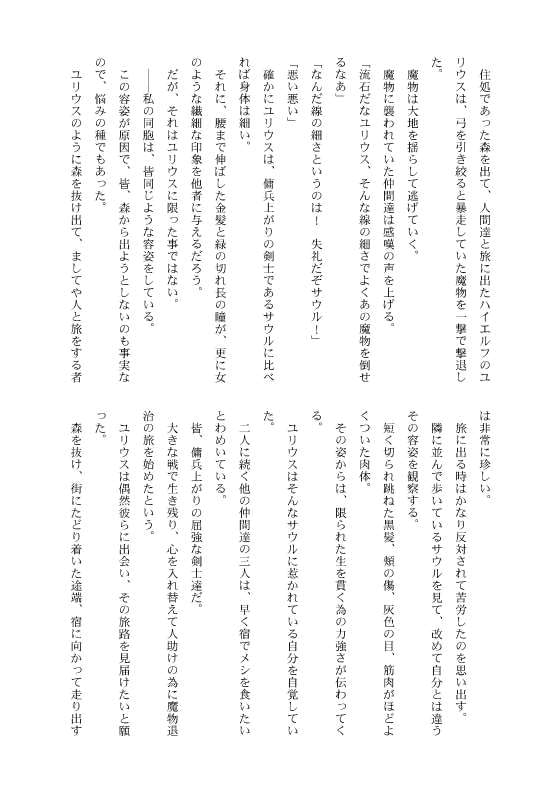 住処であった森を出て、人間達と旅に出たハイエルフのユ
リウスは、弓を引き絞ると暴走していた魔物を一撃で撃退し
た。
　魔物は大地を揺らして逃げていく。
　魔物に襲われていた仲間達は感嘆の声を上げる。
「流石だなユリウス、そんな線の細さでよくあの魔物を倒せ
るなあ」
「なんだ線の細さというのは！　失礼だぞサウル！」
「悪い悪い」
　確かにユリウスは、傭兵上がりの剣士であるサウルに比べ
れば身体は細い。
　それに、腰まで伸ばした金髪と緑の切れ長の瞳が、更に女
のような繊細な印象を他者に与えるだろう。
　だが、それはユリウスに限った事ではない。
　――私の同胞は、皆同じような容姿をしている。
　この容姿が原因で、皆、森から出ようとしないのも事実な
ので、悩みの種でもあった。
　ユリウスのように森を抜け出て、ましてや人と旅をする者
は非常に珍しい。
　旅に出る時はかなり反対されて苦労したのを思い出す。
　隣に並んで歩いているサウルを見て、改めて自分とは違う
その容姿を観察する。
　短く切られ跳ねた黒髪、頬の傷、灰色の目、筋肉がほどよ
くついた肉体。
　その姿からは、限られた生を貫く為の力強さが伝わってく
る。
　ユリウスはそんなサウルに惹かれている自分を自覚してい
た。
　二人に続く他の仲間達の三人は、早く宿でメシを食いたい
とわめいている。
　皆、傭兵上がりの屈強な剣士達だ。
　大きな戦で生き残り、心を入れ替えて人助けの為に魔物退
治の旅を始めたという。
　ユリウスは偶然彼らに出会い、その旅路を見届けたいと願
った。
　森を抜け、街にたどり着いた途端、宿に向かって走り出す